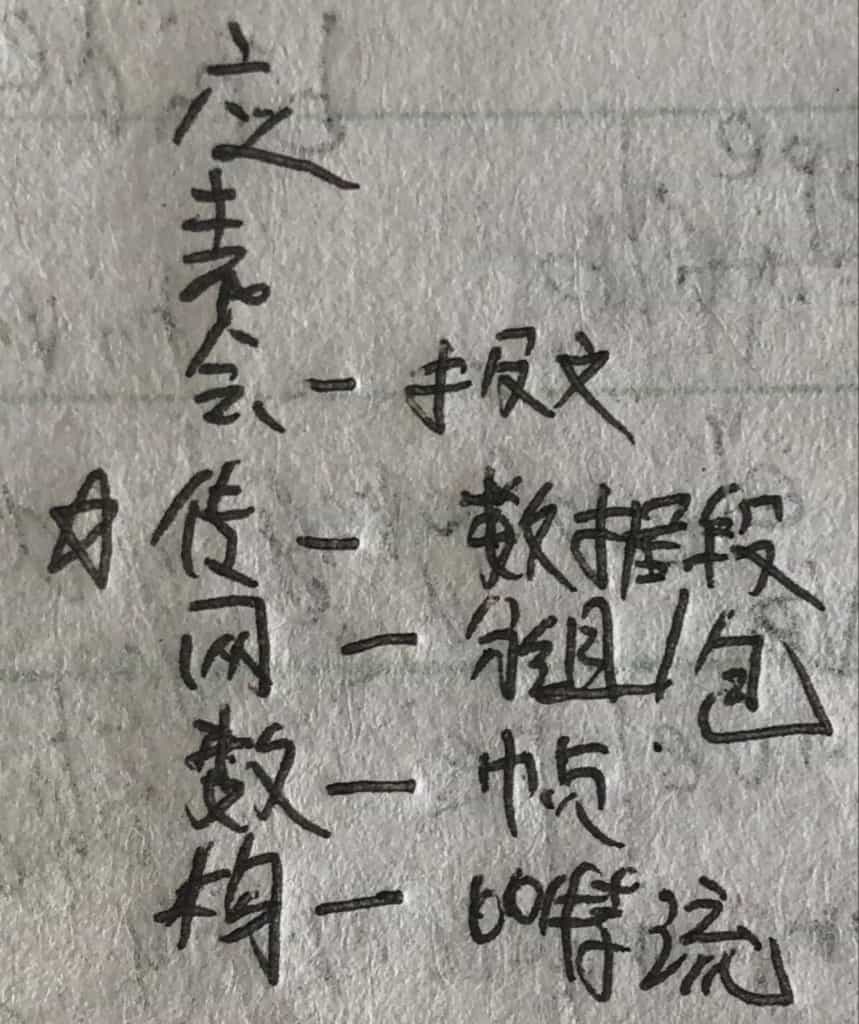 应
表
会 — 报文
☆ 传 — 数据段
网 — 分组/包
数 — 帧
物 — 比特流